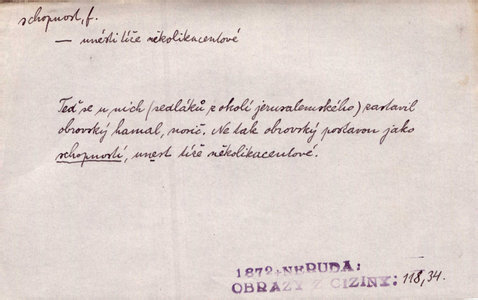 schopnost, f.
— unésti tíže několikacentové
Teď se u nich (sedláků z okolí jerusalemského) zastavil
obrovský hamal, nosič. Ne tak obrovský postavou jako
schopností, unést tíže několikacentové.
1872, NERUDA:
OBRAZY Z CIZINY: 118,34.